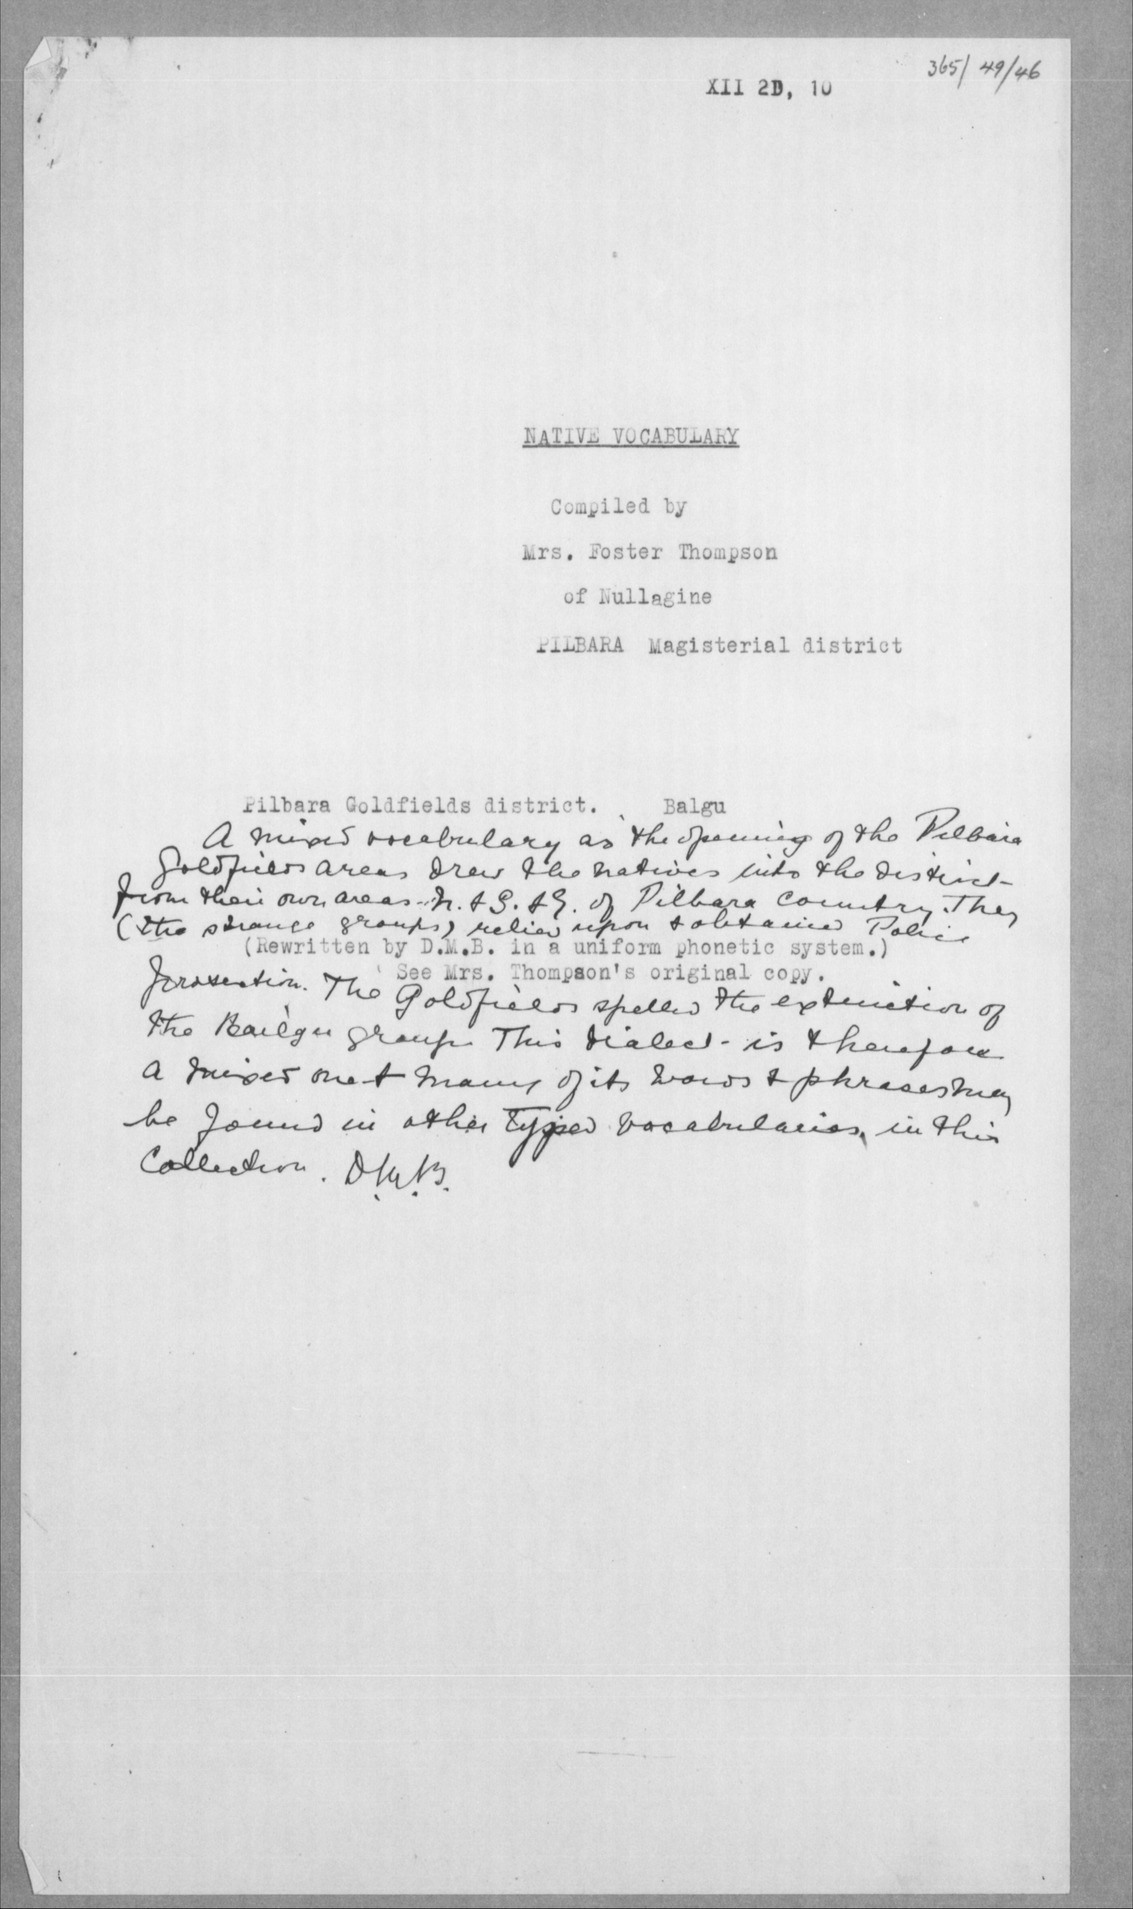 365/ 49/46
XII 2D, 10
NATIVE VOCABULARY
Compiled by
Mrs. Foster Thompson
of Nullagine
PILBARA Magisterial district
Pilbara Goldfields district. Balgu
A mixed vocabulary as the opening of the Pilbara
Goldfields areas drew the natives into the district
from their own areas N. & S. & E. of Pilbara country. They
(the strange groups) relied upon & obtained Police
(Rewritten by D.M.B. in a uniform phonetic system.)
See Mrs. Thompson's original copy.
protection. The Goldfields spelled the extinction of
the Bailgu group. This dialect is therefore
a mixed one & many of its words & phrases may
be found in other typed vocabularies, in this
Collection. D.M.B.